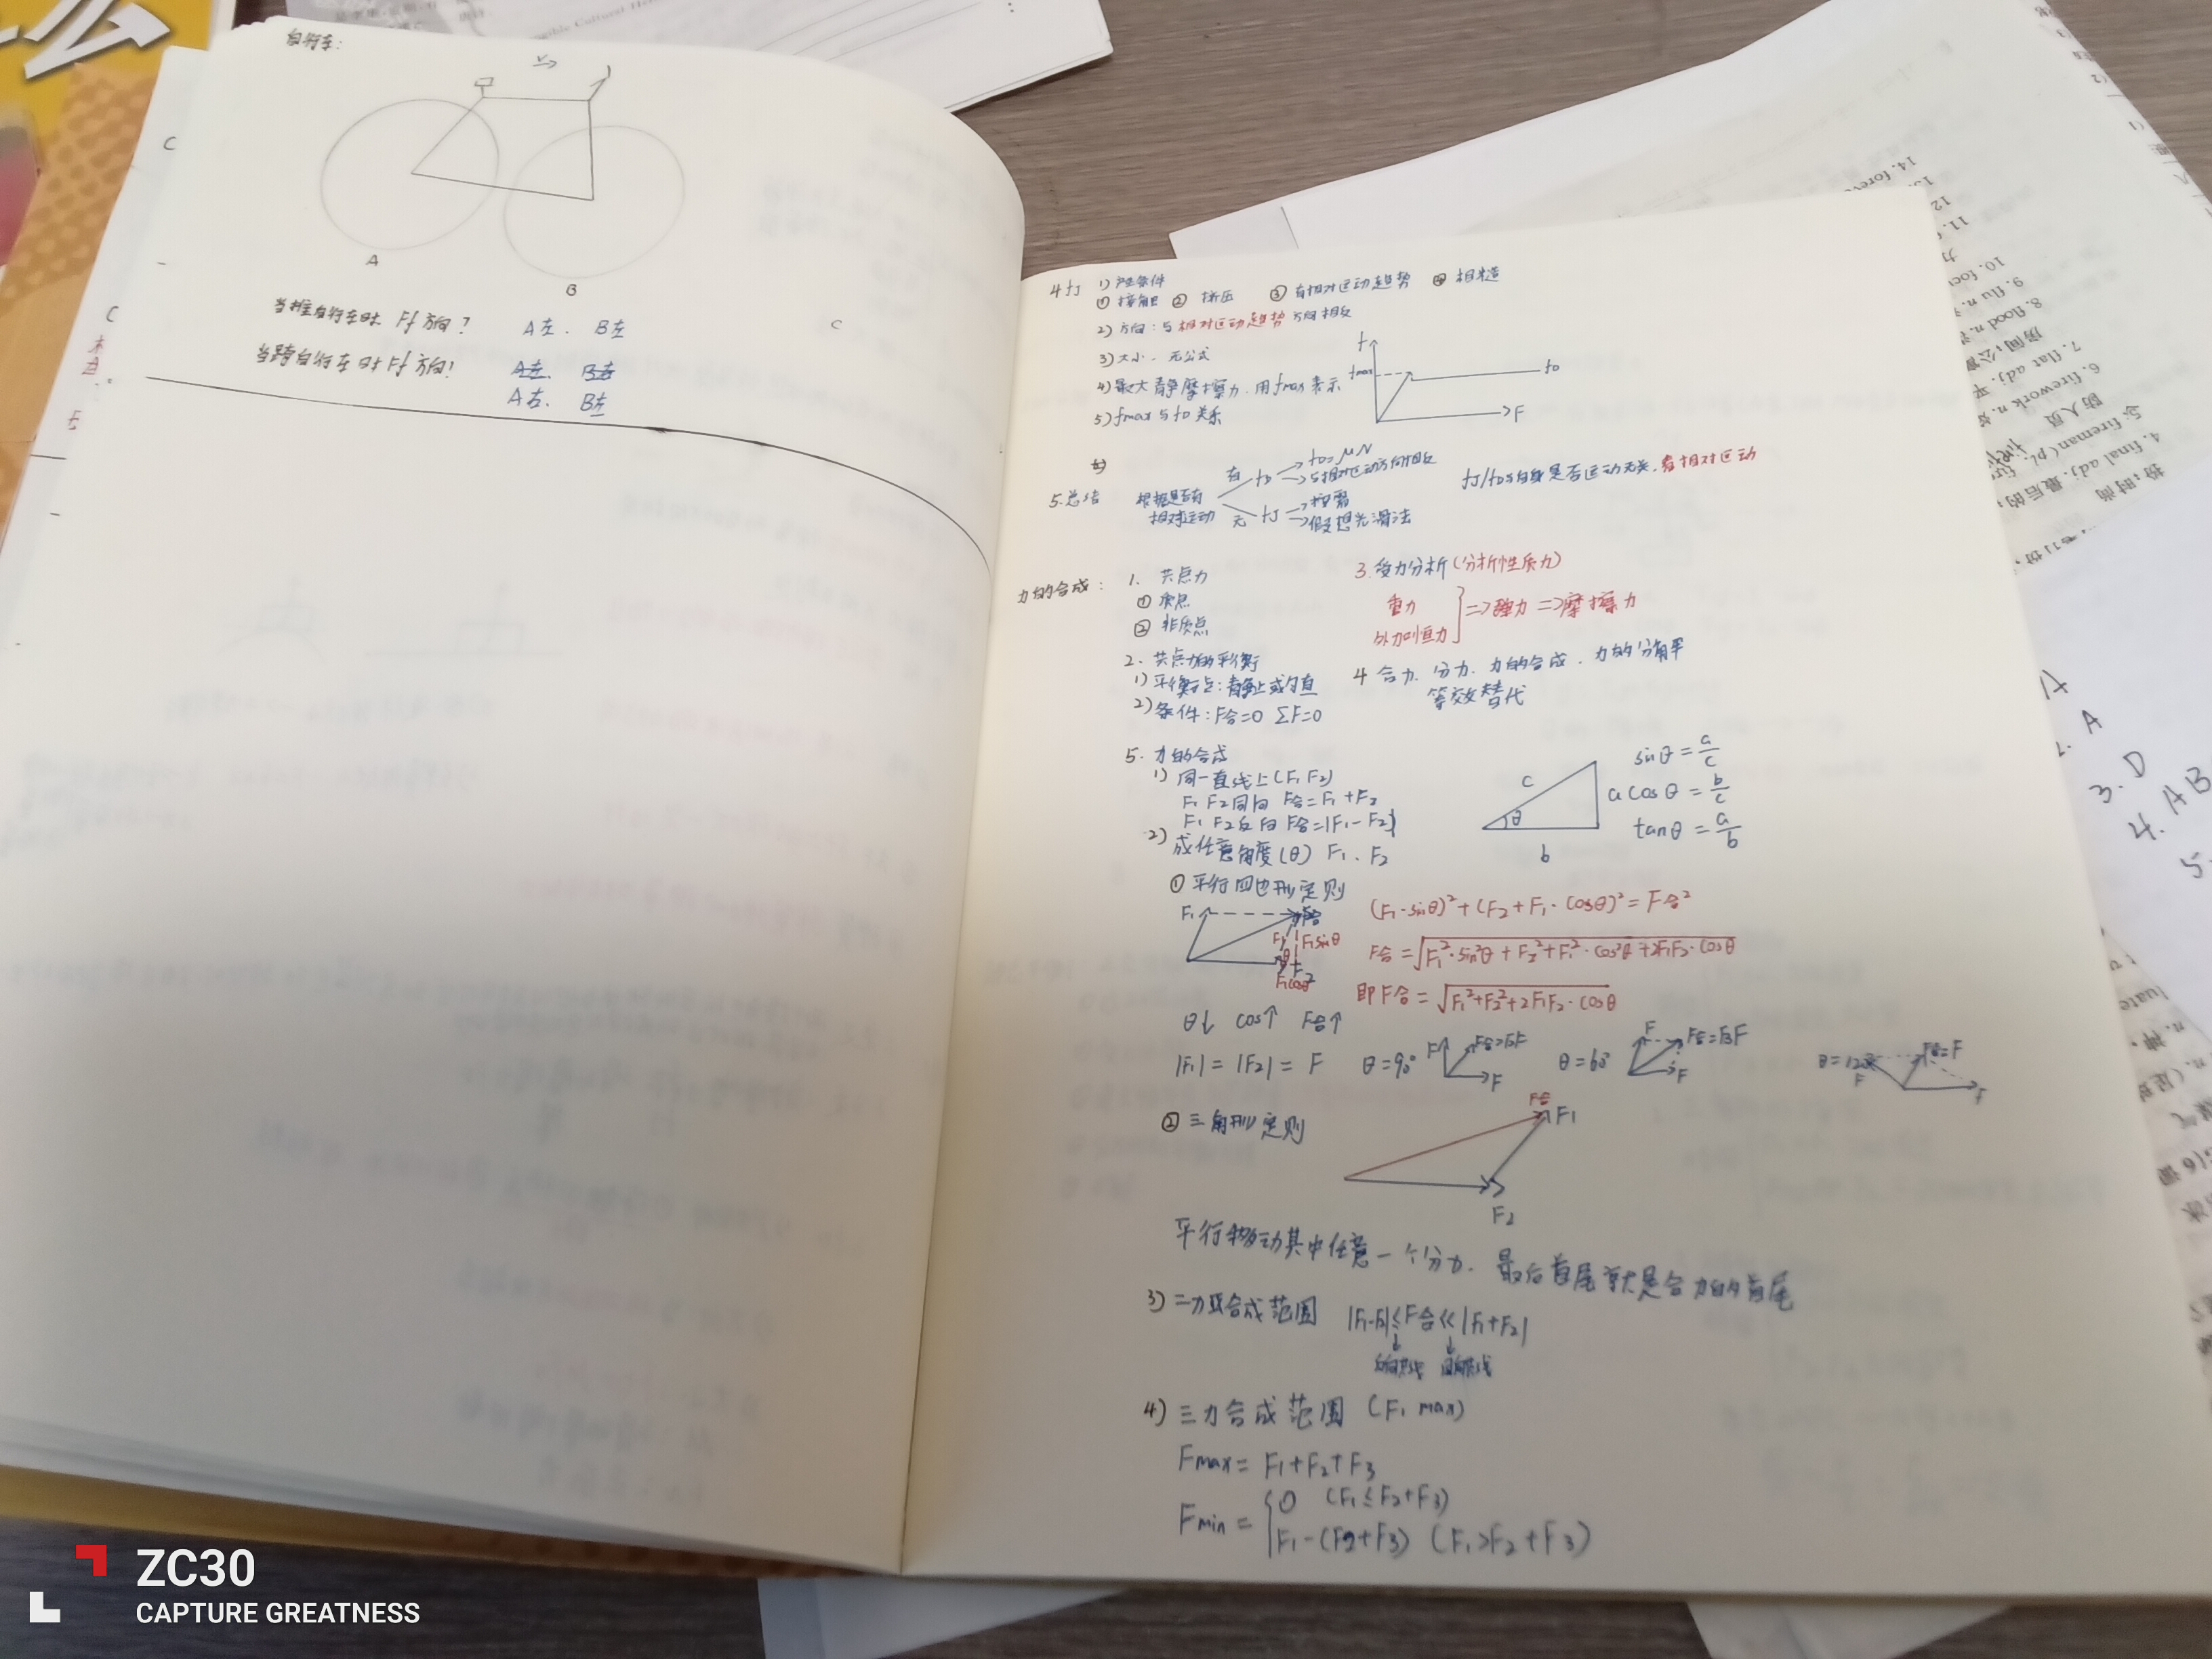 自行车:
V
A
B
当推自行车时 Ff 方向?
A左. B左
当骑自行车时 Ff 方向!
A左. B右
A右. B左
C
4 fJ 1) 产生条件
① 接触 ② 挤压 ③ 有相对运动趋势 ④ 粗糙
2) 方向: 与相对运动趋势方向相反
3) 大小. 无公式
4) 最大静摩擦力. 用fmax表示
5) fmax与fD关系
f
fmax
fD
F
5.总结
根据是否有
相对运动
有 fD
fD=μN
与相对运动方向相反
无 fJ
假想光滑法
fJ/fD与自身是否运动无关. 看相对运动
力的合成:
1. 共点力
① 质点
② 非质点
2. 共点力的平衡
1) 平衡态: 静止或匀直
2) 条件: F合=0 ΣF=0
3. 受力分析(分析性质力)
重力
外加恒力
=> 弹力 => 摩擦力
4 合力. 分力. 力的合成. 力的分解
等效替代
5. 力的合成
1) 同一直线上(F1 F2)
F1 F2同向 F合=F1+F2
F1 F2反向 F合=|F1-F2|
2) 成任意角度(θ) F1. F2
c
θ
a
b
sinθ=a/c
cosθ=b/c
tanθ=a/b
① 平行四边形定则
F1
F合
F1
F1sinθ
θ
F2
F1cosθ
(F1·sinθ)²+(F2+F1·cosθ)²=F合²
F合=√F1²·sin²θ+F2²+F1²·cos²θ+2F1F2·cosθ
即F合=√F1²+F2²+2F1F2·cosθ
θ↓ cos↑ F合↑
|F1|=|F2|=F
θ=90° F F合=√2F F
θ=60° F F合=√3F F
θ=120° F F合=F F
② 三角形定则
F合
F1
F2
平行移动其中任意一个分力. 最后首尾就是合力的首尾
3) 二力合成范围 |F1-F2|≤F合≤|F1+F2|
4) 三力合成范围 (F1 max)
Fmax=F1+F2+F3
Fmin={0 (F1≤F2+F3)
F1-(F2+F3) (F1>F2+F3)
14. forev
12
11.
10. foc
9. flu n.
8. flood n.
7. flat adj. 平
6. firework n.
防人员
5. fireman (pl.
4. final adj. 最后的,
2. A
3. D
4. AB
5.
ZC30
CAPTURE GREATNESS